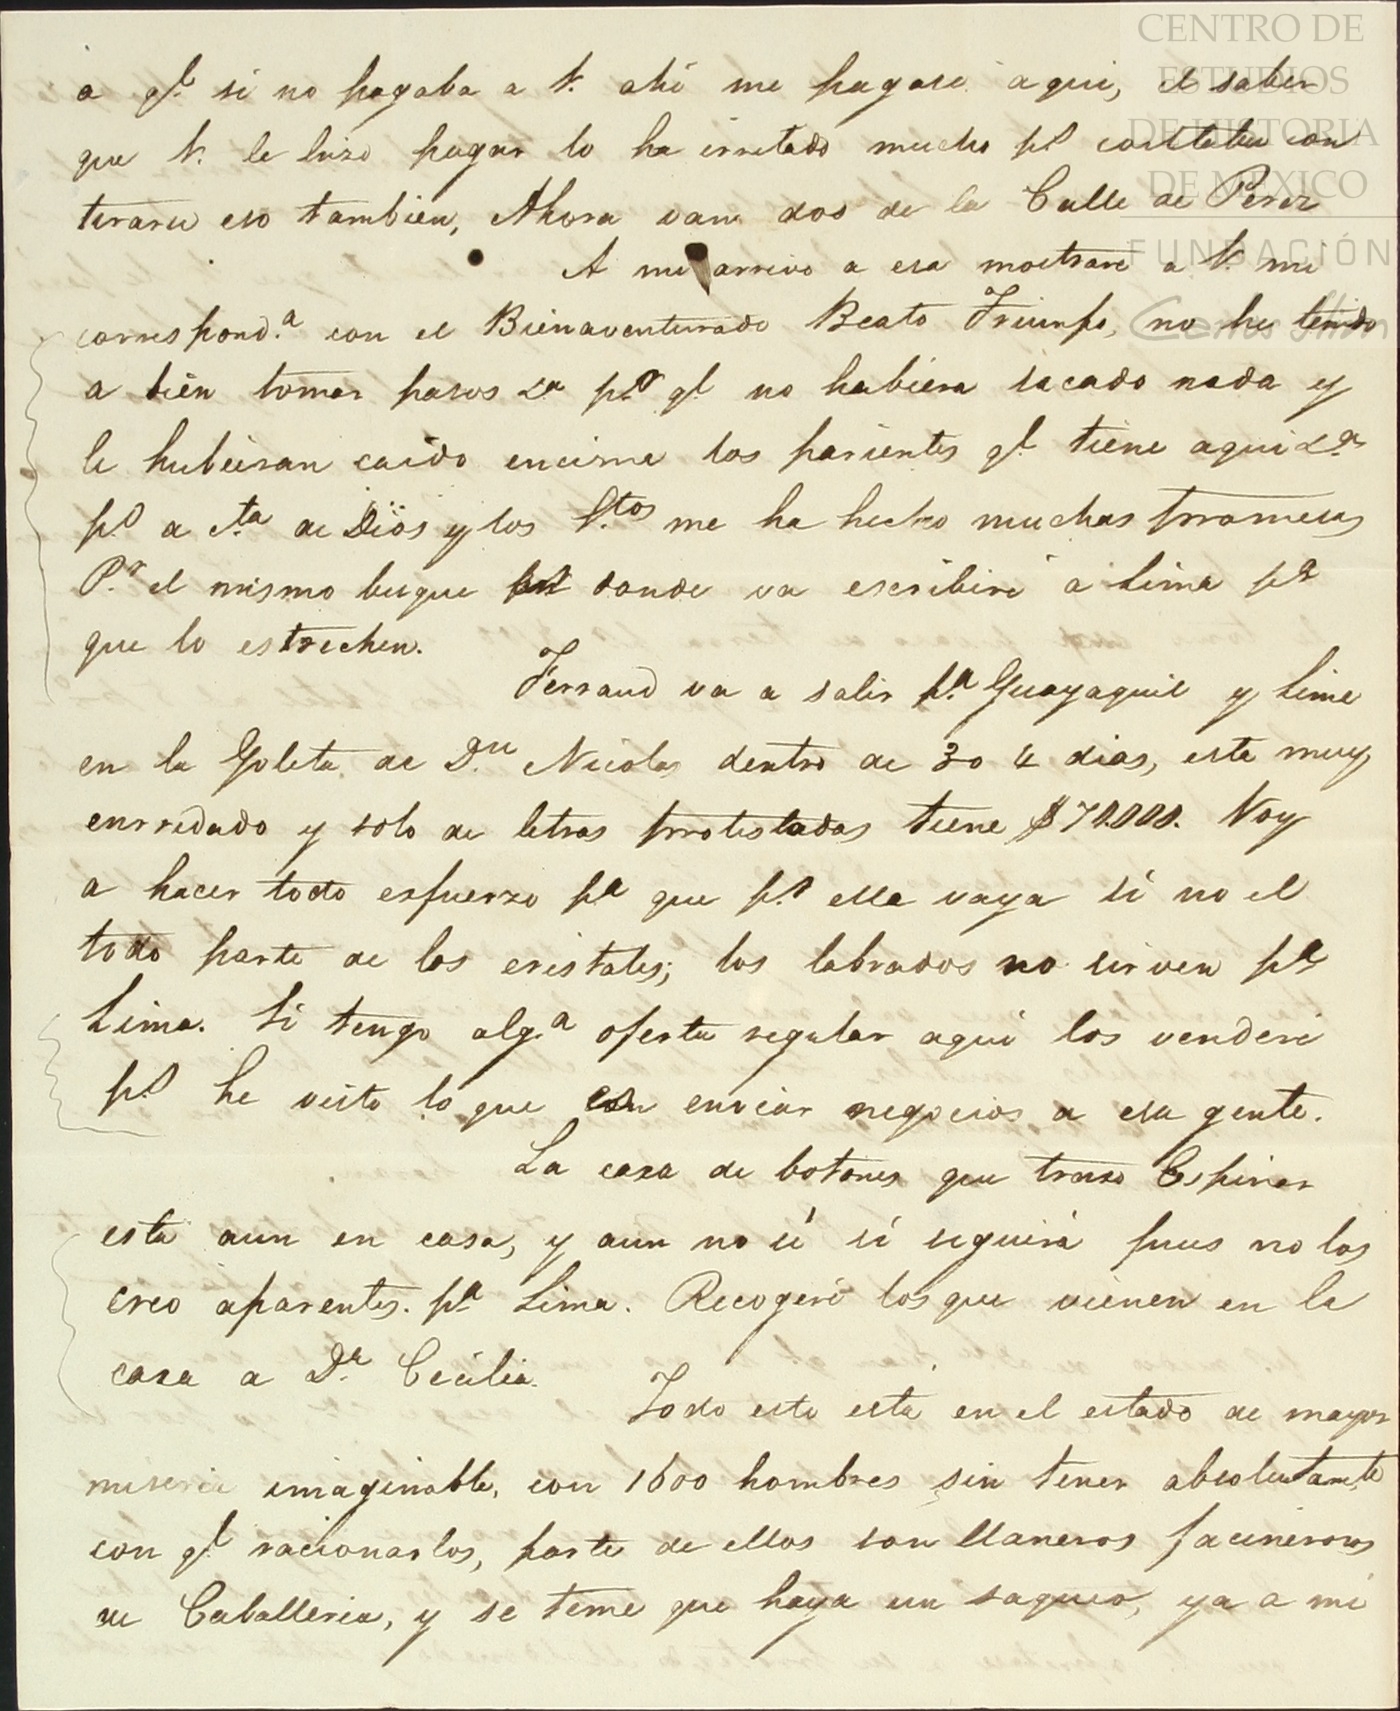 CENTRO DE
ESTUDIOS
DE HISTORIA
DE MÉXICO
FUNDACIÓN
Carlos Slim
a qe. si no pagaba a V. ahí me pagase aqui, el saber
que V. le hizo pagar lo ha irritado mucho po. contaba con
tirarse eso tambien, Ahora van dos de la Calle de Perez
A mi arrivo a esa mostraré a V. mi
correspond.a con el Bienaventurado Beato Triunfo, no he tenido
a bien tomar pasos pr. qe. no habiera sacado nada y
le hubieran caido encima los parientes qe. tiene aqui
po. a Sta. de Dios y los Stos. me ha hecho muchas promesas
Pr. el mismo buque donde va escribiré a Lima pa.
que lo estrechen.
Ferraud va a salir pa. Guayaquil y Lima
en la Goleta de Dn. Nicolas dentro de 3 o 4 dias, esta muy
enrredado y solo de letras protestadas tiene $70.000. Voy
a hacer todo esfuerzo pa. que pr. ella vaya si no el
todo parte de los cristales; los labrados no sirven pa.
Lima. Si tengo alg.a oferta regular aquí los venderé
po. he visto lo que son enviar negocios a esa gente.
La caxa de botones que traxo Espinar
esta aun en casa, y aun no sé si seguirá pues no los
creo aparentes. pa. Lima. Recogeré los que vienen en la
caxa a Da. Cecilia.
Todo esto está en el estado de mayor
miseria imaginable, con 1600 hombres sin tener absolutamte.
con qe. racionarlos, parte de ellos son llaneros facinerosos
de Caballeria, y se teme que haya un saqueo, ya a mi